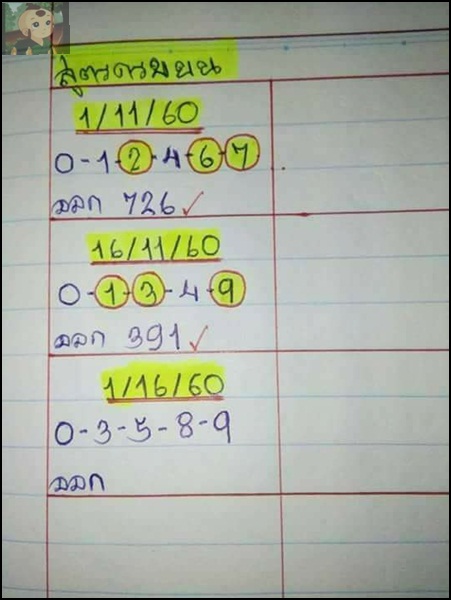 สูตรครบบน
1/11/60
0-1-2-4-6-7
ออก 726 ✓
16/11/60
0-1-3-4-9
ออก 391 ✓
1/16/60
0-3-5-8-9
ออก